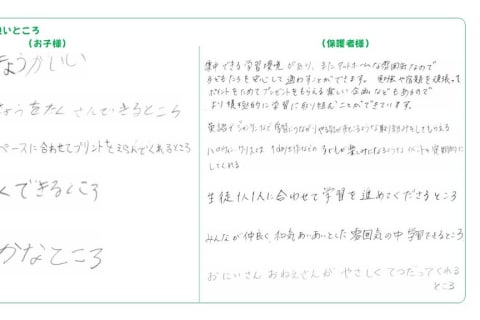 良いところ
（お子様）
（保護者様）
きょうかいい
きょうをたくさんできるところ
ペースに合わせてプリントをえらんでくれるところ
くできるところ
かなところ
集中できる学習環境があり、またアットホームな雰囲気なので
子どもたちを安心して通わすことができます。勉強や宿題を頑張って
ポイントをためてプレゼントをもらえる楽しい企画などもあるので
より積極的に学習に取り組んことができています。
英語でジャンケンなど学習につながりや活気が出るような取り組みをしてもらえる
ハロウィン、クリスマスは工作など子どもが楽しみになるようなイベントを定期的に
してくれる
生徒1人1人に合わせて学習を進めてくださるところ
みんなが仲良く、和気あいあいとした雰囲気の中学習できるところ
おにいさんおねえさんがやさしくてつだってくれる
ところ